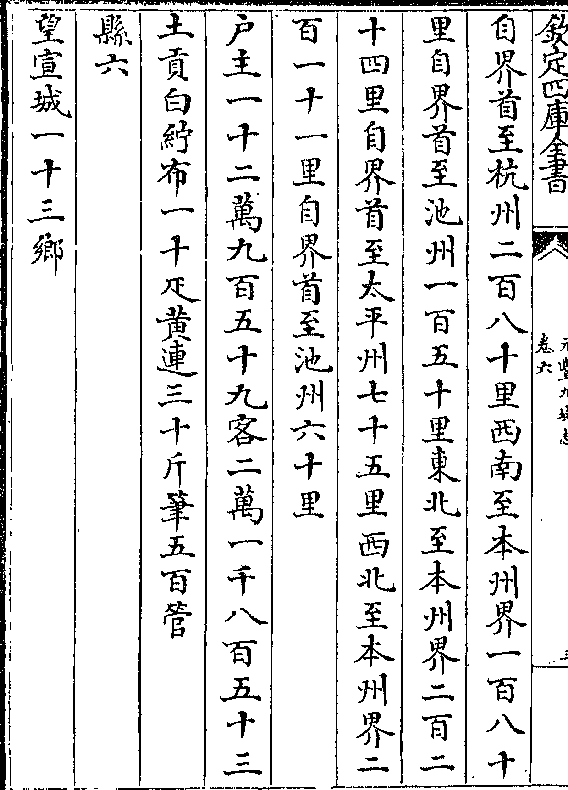 欽定四庫全書
元豐九域志
卷六
自界首至杭州二百八十里西南至本州界一百八十
里自界首至池州一百五十里東北至本州界二百二
十四里自界首至太平州七十五里西北至本州界二
百一十一里自界首至池州六十里
户主一十二萬九百五十九客二萬一千八百五十三
土貢白紵布一十疋黄連三十斤筆五百管
縣六
望宣城一十三鄉